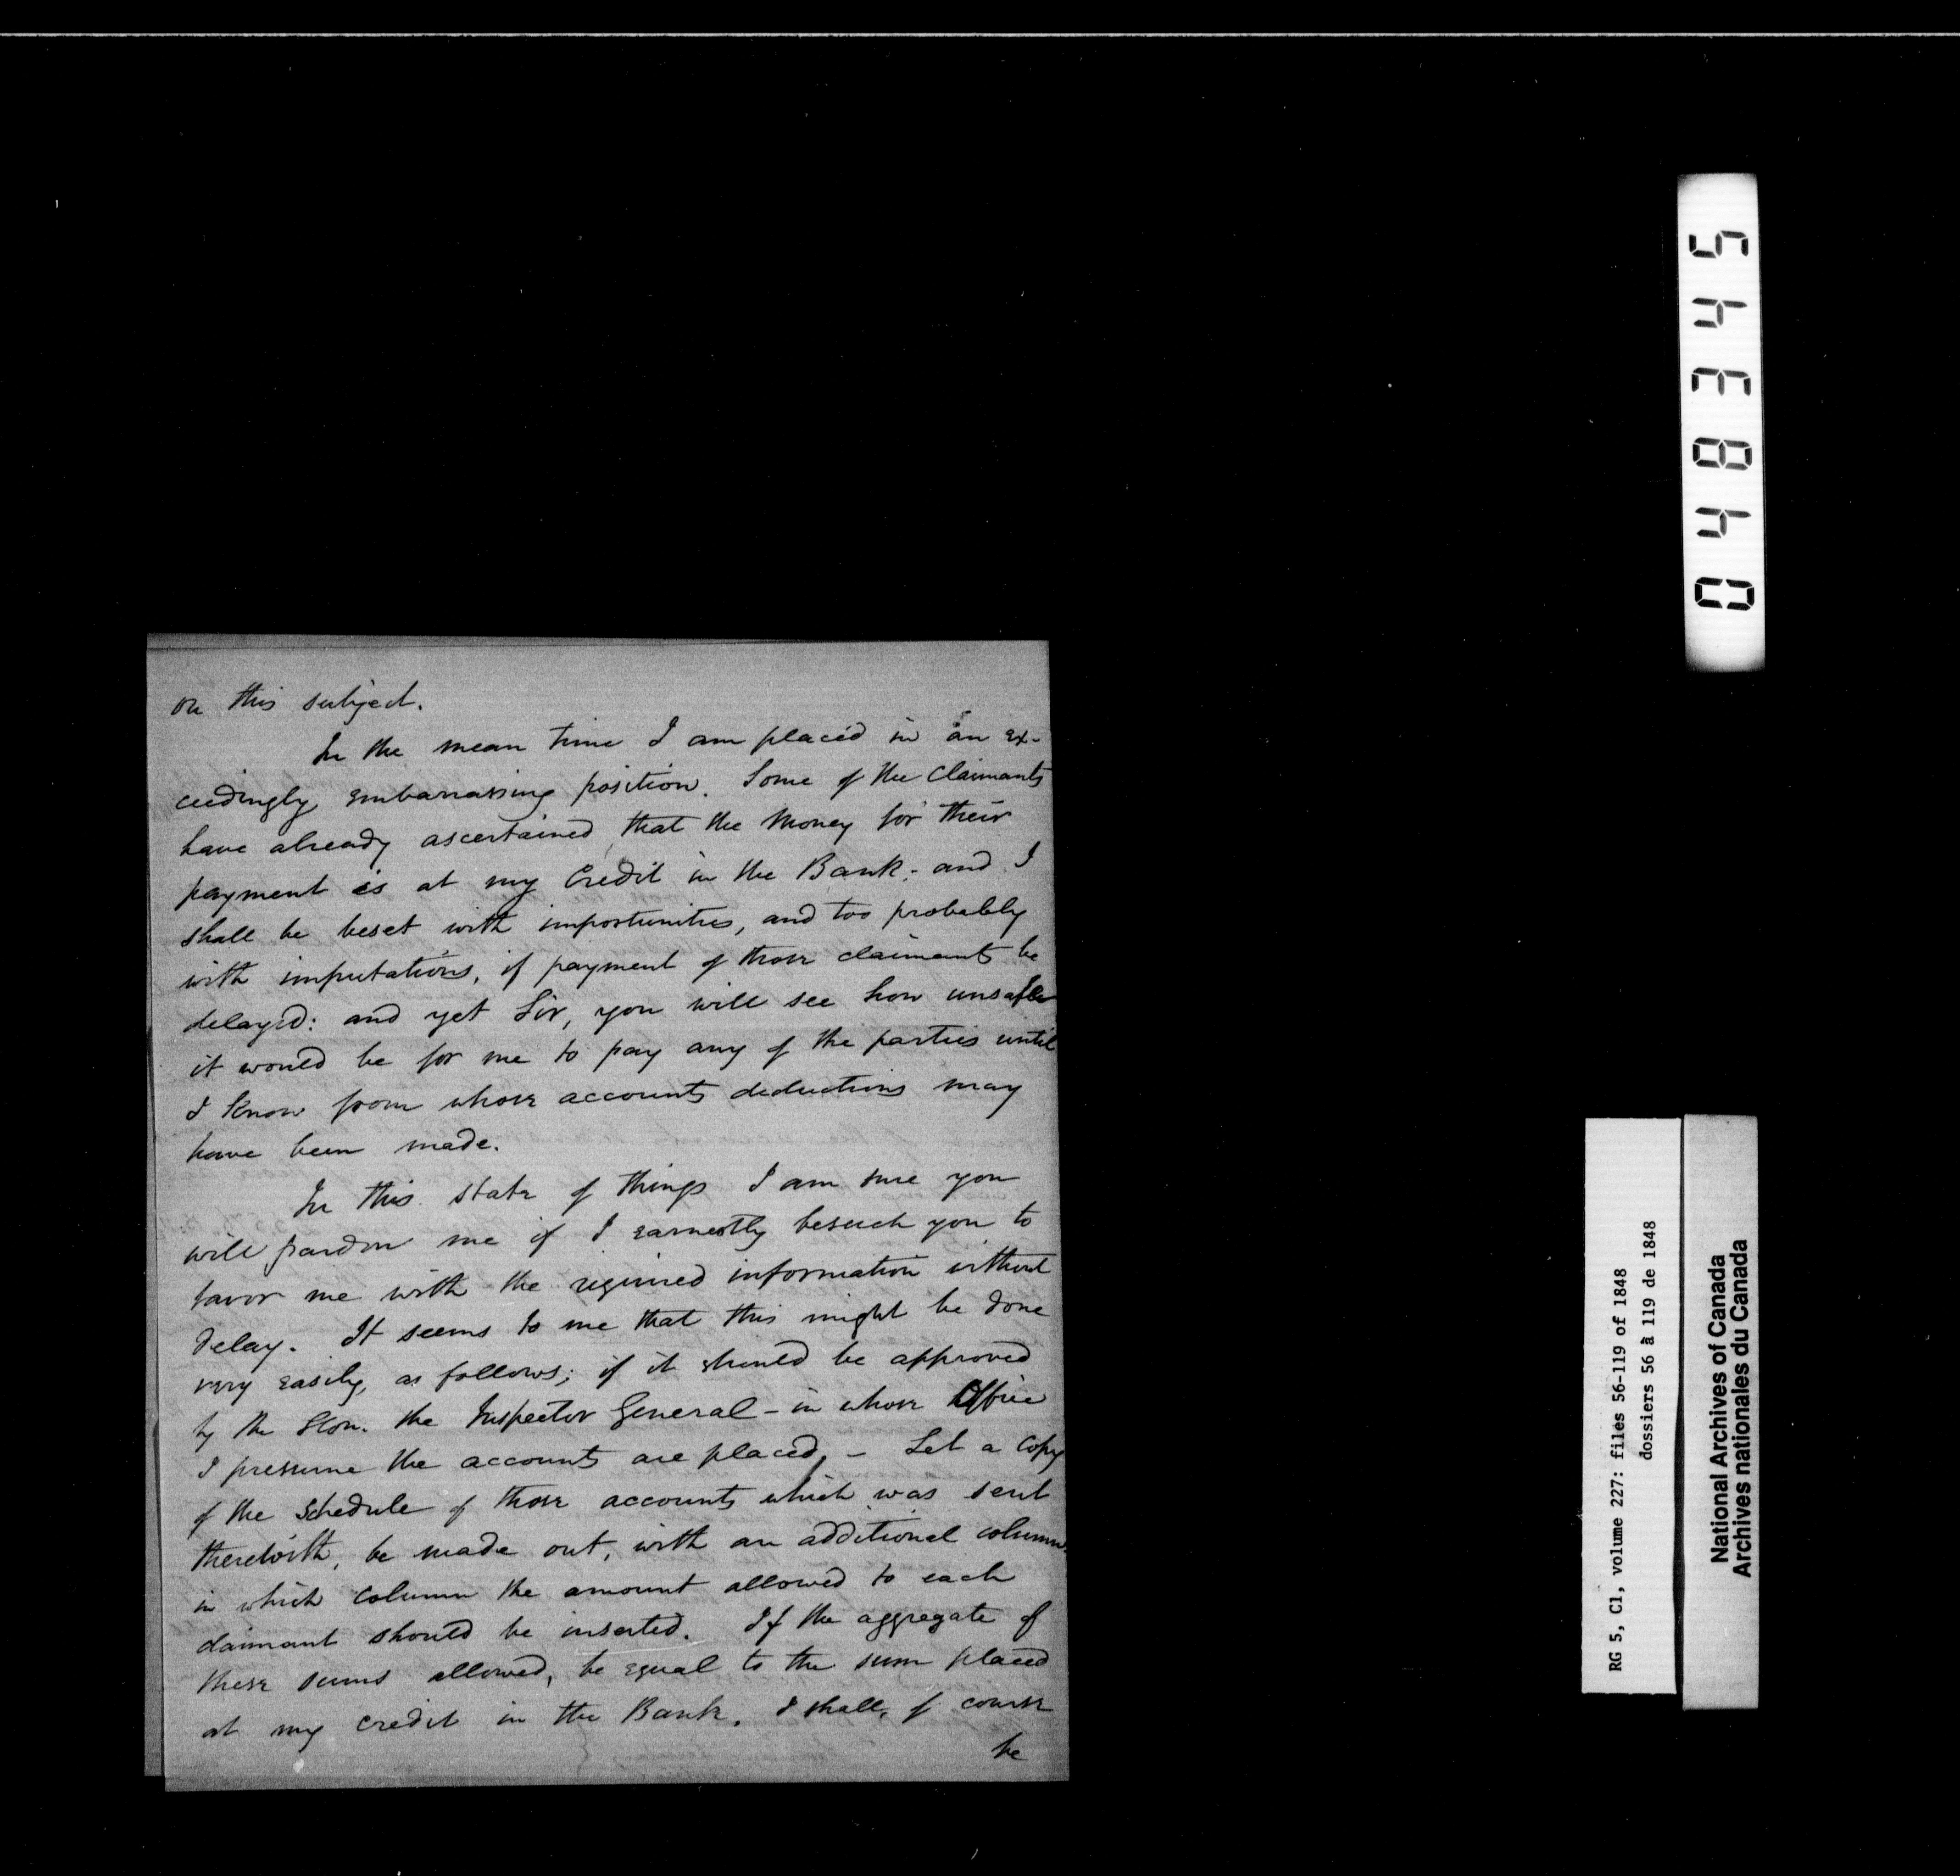 on this subject.
In the mean time I am placed in an ex-
ceedingly embarrassing position. Some of the Claimants
have already ascertained that the Money for their
payment is at my Credit in the Bank; and I
shall be beset with importunities, and too probably
with imputations, if payment of those claimants be
delayed: and yet Sir, you will see how unsafe
it would be for me to pay any of the parties until
I know from whose accounts deductions may
have been made.
In this state of things I am sure you
will pardon me if I earnestly beseech you to
favor me with the required information without
delay. It seems to me that this might be done
very easily, as follows; if it should be approved
by the Hon. the Inspector General - in whose Office
I presume the accounts are placed, - Let a Copy
of the Schedule of those accounts which was sent
therewith, be made out, with an additional column,
in which column the amount allowed to each
claimant should be inserted. If the aggregate of
these sums allowed, be equal to the sum placed
at my credit in the Bank, I shall, of course
be
043845
RG 5, C1, volume 227: files 56-119 of 1848
dossiers 56 à 119 de 1848
National Archives of Canada
Archives nationales du Canada